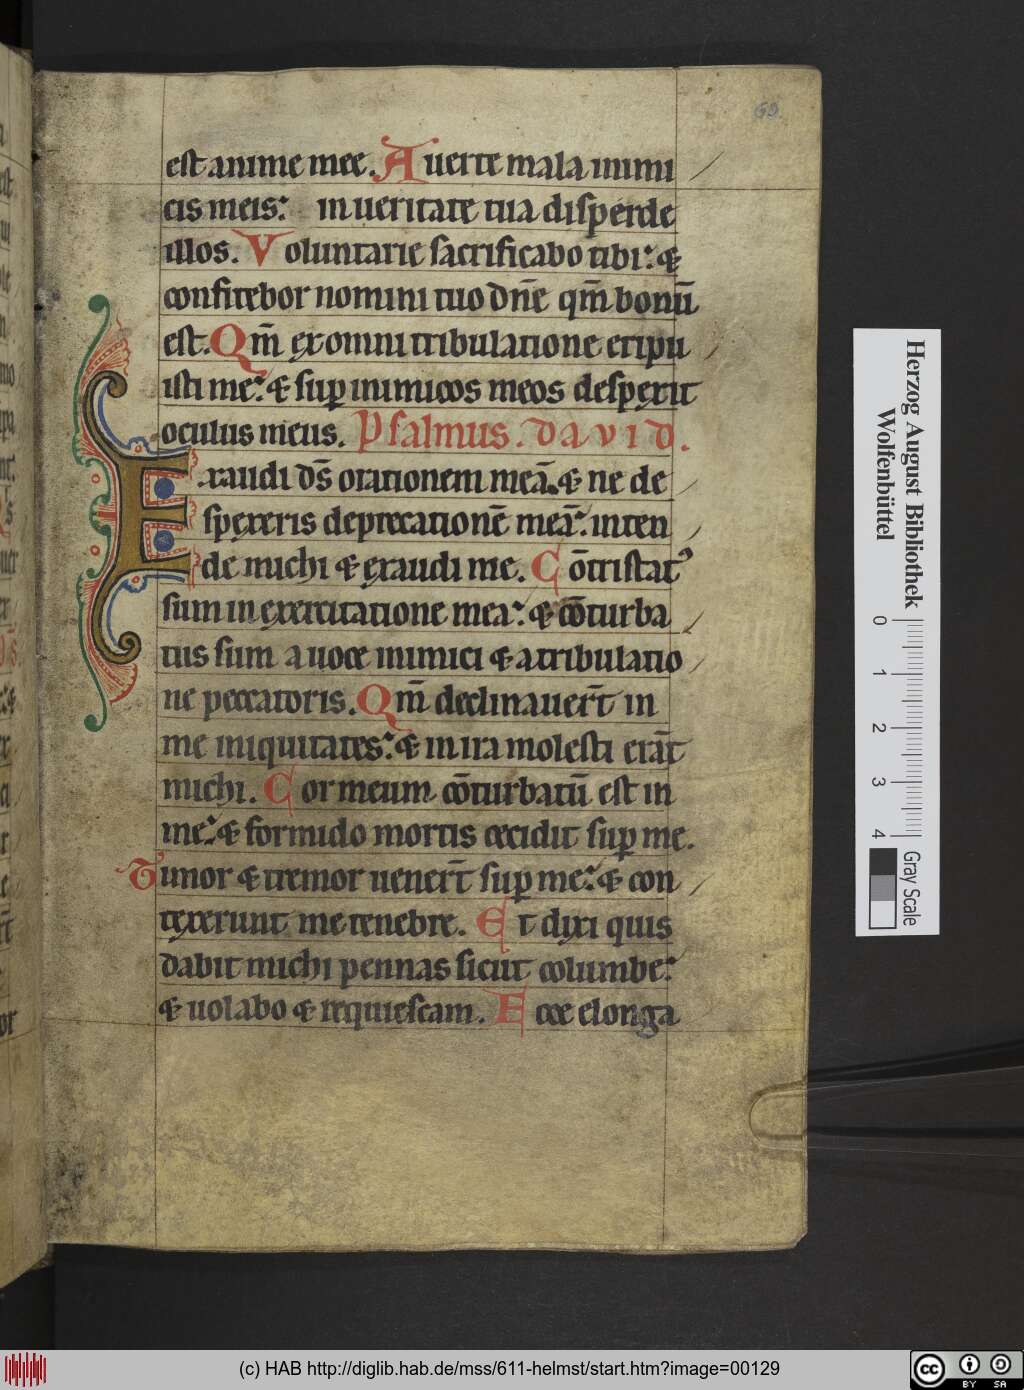 69.
est anime mee. Auerte mala inimi
cis meis: in ueritate tua disperde
illos. Voluntarie sacrificabo tibi: &
confitebor nomini tuo dn̄e qm̄ bonū
est. Qm̄ ex omni tribulatione eripu
isti me: & sup inimicos meos despexit
oculus meus. Psalmus. david.
Exaudi ds̄ orationem meā. & ne de
spexeris deprecationē meā: inten
de michi & exaudi me. Cōtristatꝰ
sum in exercitatione mea: & cōturba
tus sum a uoce inimici & a tribulatio
ne peccatoris. Qm̄ declinauer̄t in
me iniquitates: & in ira molesti erāt
michi. Cor meum cōturbatū est in
me: & formido mortis cecidit sup me.
Timor & tremor uener̄t sup me: & con
texerunt me tenebre. Et dixi quis
dabit michi pennas sicut columbe:
& uolabo & requiescam. Ecce elonga
Herzog August Bibliothek
Wolfenbüttel
0 1 2 3 4
Gray Scale
(c) HAB http://diglib.hab.de/mss/611-helmst/start.htm?image=00129
cc BY SA